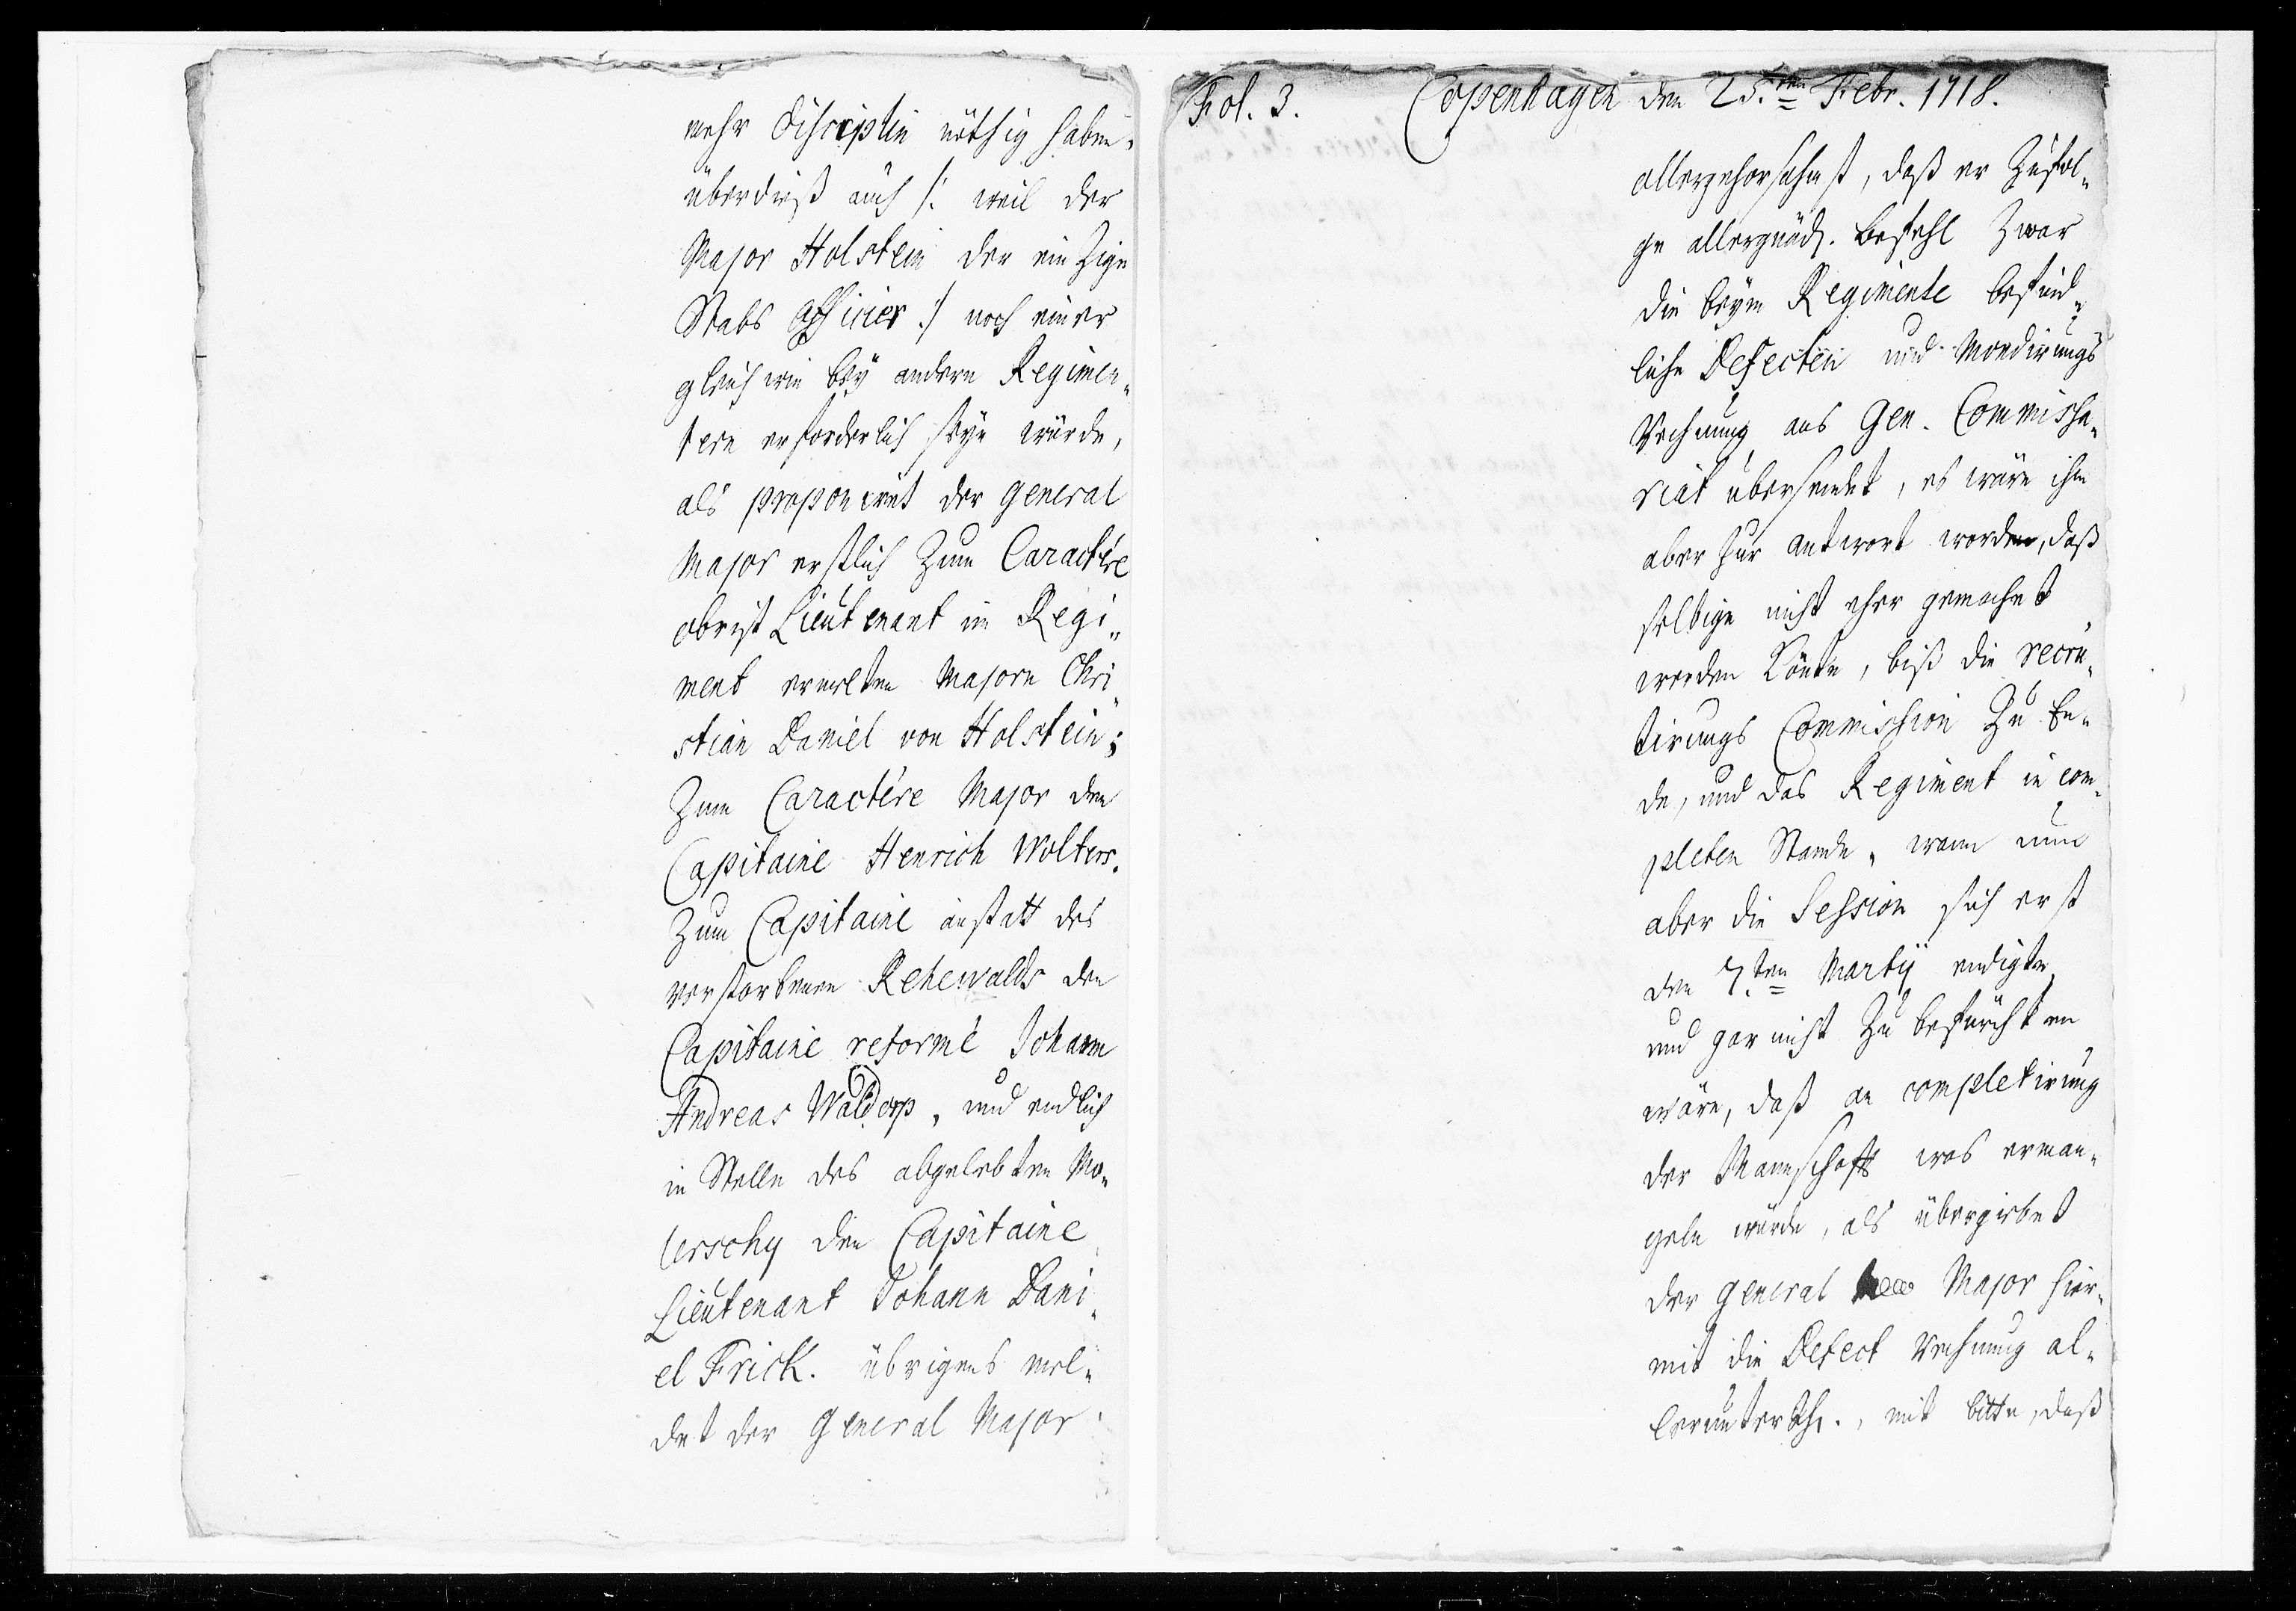 mehr disciplin nöthig haben,
überdieß auch /: weil der
Major Holstein der ein Zige
Stabs officier :/ noch einer
gleich wie beÿ andern Regimen„
tern erforderlich seÿn würde,
als proponiret der General
Major erstlich Zum Caractére
obrist Lieutenant im Regi„
ment ermelten Majorn Chri„
stian Daniel von Holstein;
Zum Caractére Major den
Capitaine Henrich Wolters.
Zum Capitaine anstatt des
verstorbenen Rehewalds den
Capitaine reformé Johann
Andreas Waldorp, und endlich
in Stelle des abgelebten Mo„
lerschy den Capitaine
Lieutenant Johann Dani„
el Frick. übrigens mel„
det der General Major
Fol. 3. Copenhagen den 25.ten Febr. 1718.
allergehorsahmst, daß er Zufol„
ge allergnäds. befehl Zwar
die beÿm Regimente befind„
liche Defecten und Mondirungs
Rechnung ans Gen. Commissa„
riat übersendet, es wäre ihm
aber zur antwort worden, daß
selbige nicht eher gemachet
werden Könte, biß die recru„
tirungs Commission Zu En„
de, und das Regiment in com„
pleten Stande, wann nun
aber die Session sich erst
den 7.ten Martÿ endigte,
und gar nicht Zu befürchten
wäre, daß an completirung
der Mannschafft was erman„
geln würde, als übergiebet
der General Major hier„
mit die Defect Rechnung al„
lerunterths., mit bitte, daß